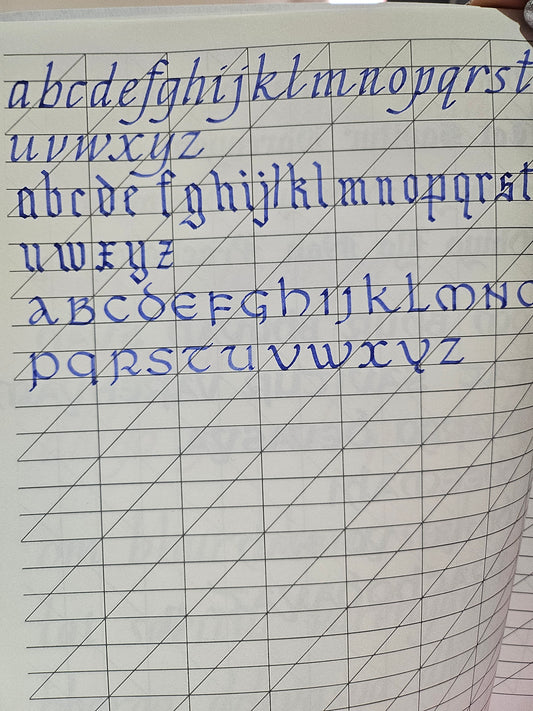 abcdefghijklmnopqrst
uvwxyz
abcdefghijlklmnopqrst
uwxyz
ABCDEFGhIJKLMNO
PQRSTUVWXYZ